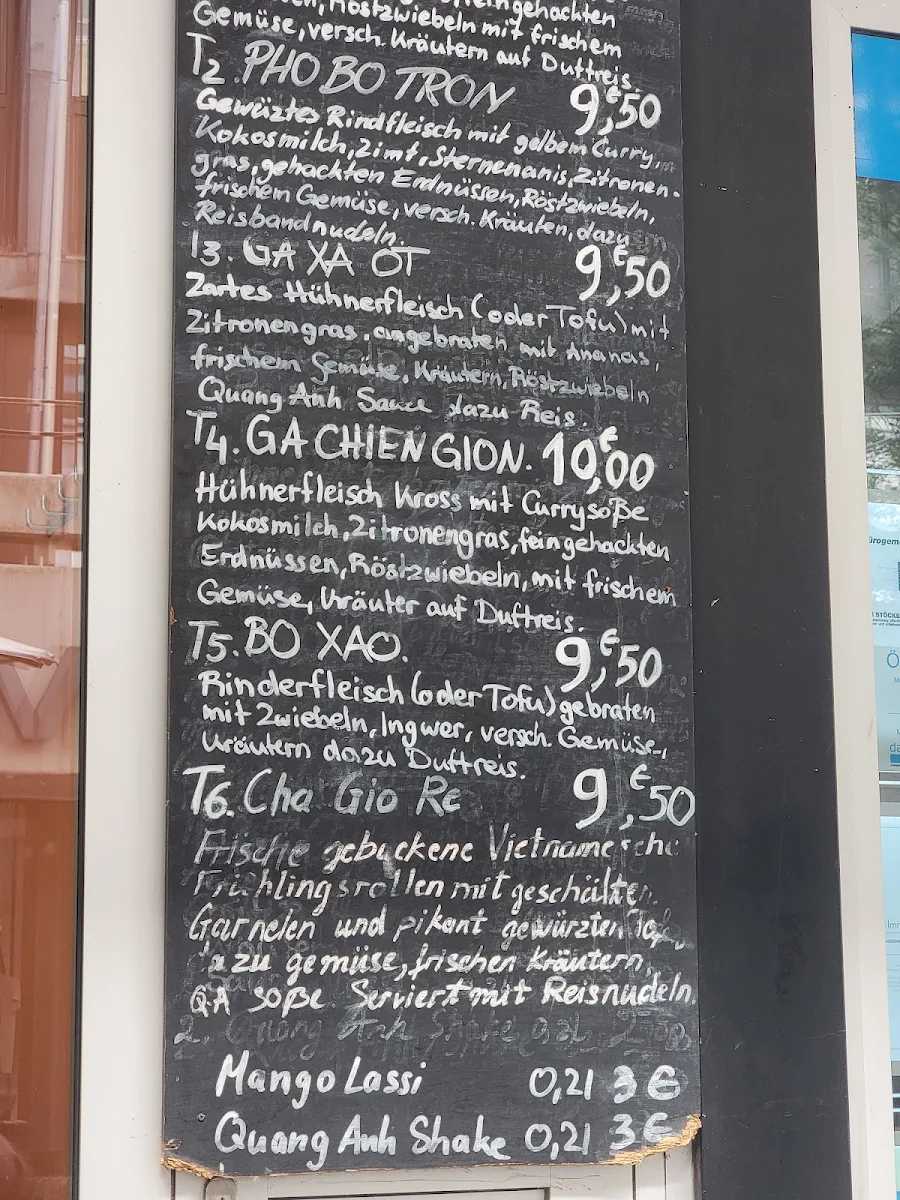 Röstzwiebeln mit frischem
Gemüse, versch. Kräutern auf Duftreis.
T2. PHO BO TRON 9,50 €
Gewüztes Rindfleisch mit gelbem Curry,
Kokosmilch, Zimt, Sternenanis, Zitronen-
gras, gehackten Erdnüssen, Röstzwiebeln,
frischem Gemüse, versch. Kräuten, dazu
Reisbandnudeln.
T3. GA XA OT 9,50 €
Zartes Hühnerfleisch (oder Tofu) mit
Zitronengras, angebraten mit Ananas,
frischem Gemüse, Kräutern, Röstzwiebeln
Quang Anh Sauce dazu Reis.
T4. GA CHIEN GION. 10,00 €
Hühnerfleisch Kross mit Currysoße
Kokosmilch, Zitronengras, feingehackten
Erdnüssen, Röstzwiebeln, mit frischem
Gemüse, Kräuter auf Duftreis.
T5. BO XAO. 9,50 €
Rinderfleisch (oder Tofu) gebraten
mit Zwiebeln, Ingwer, versch. Gemüse,
Kräutern dazu Duftreis.
T6. Cha Gio Re 9,50 €
Frische gebackene Vietnamesche
Frühlingsrollen mit geschälten
Garnelen und pikant gewürzten
dazu gemüse, frischen Kräutern,
QA soße. Serviert mit Reisnudeln.
2. Quang Anh Shake
Mango Lassi 0,2l 3 €
Quang Anh Shake 0,2l 3 €